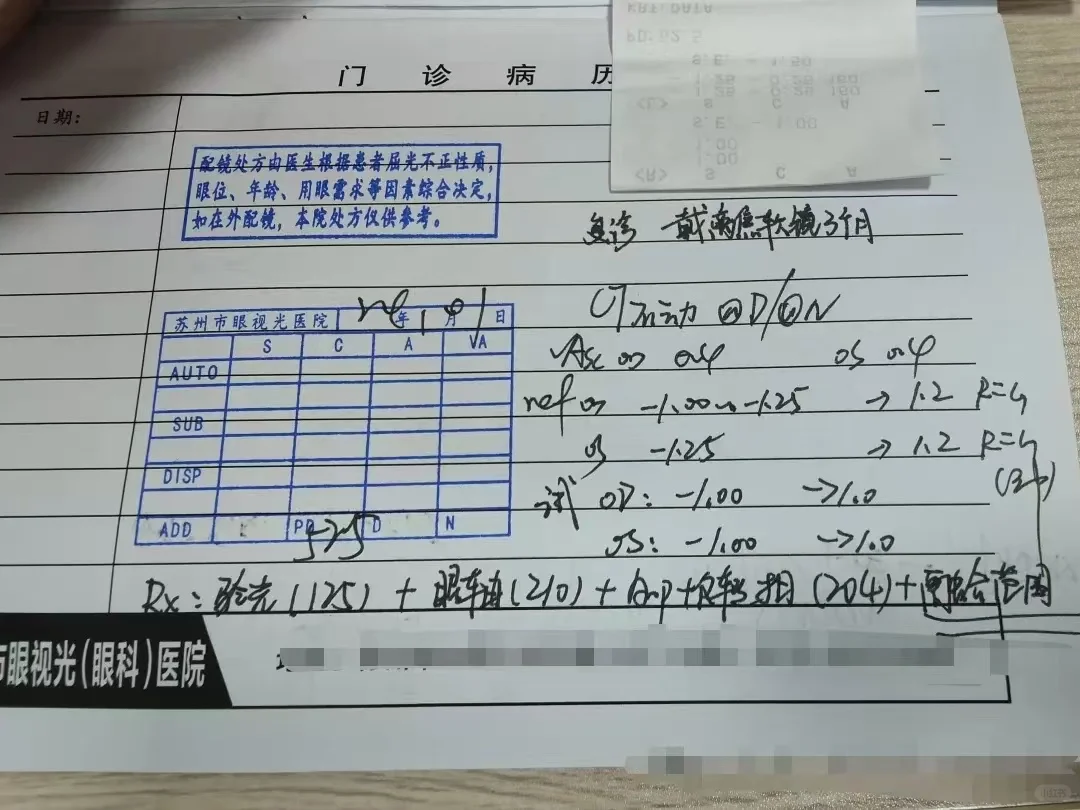 KRT.DATA
PD:62.5
S.E. - 1.50
- 1.25 - 0.25 160
- 1.25 - 0.25 160
<L> S C A
S.E. - 1.00
- 1.00
- 1.00
<R> S C A
门诊病历
日期:
配镜处方由医生根据患者屈光不正性质,
眼位、年龄、用眼需求等因素综合决定,
如在外配镜,本院处方仅供参考。
复诊 戴离焦软镜3个月
苏州市眼视光医院 年 月 日
S C A VA
AUTO
SUB
DISP
ADD PD D N
525
不动 @D/@N
VAsc OD 0.4 OS 0.4
ref OD -1.00 -1.25 → 1.2 R=G
OS -1.25 → 1.2 R=G
试 OD: -1.00 →1.0
OS: -1.00 →1.0
Rx: 验光(125) + 眼轴(210) + + (204) + 范围
眼视光(眼科)医院